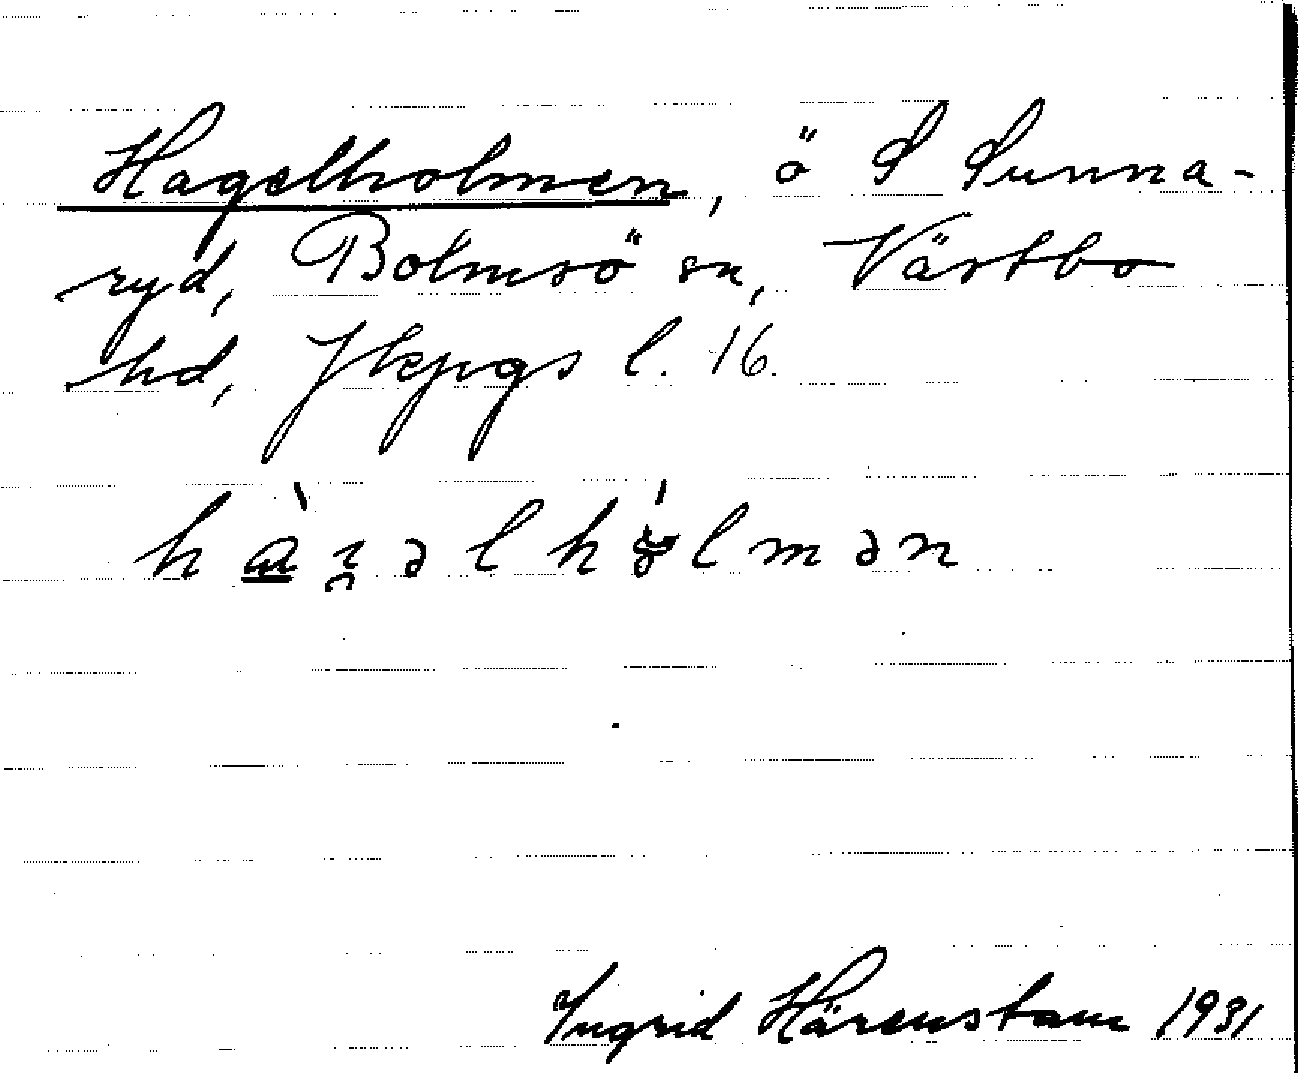 Hagelholmen, ö S Sunna-
ryd, Bolmsö sn, Västbo
hd, Jkpgs l. 16.
Ingrid Härenstam 1931